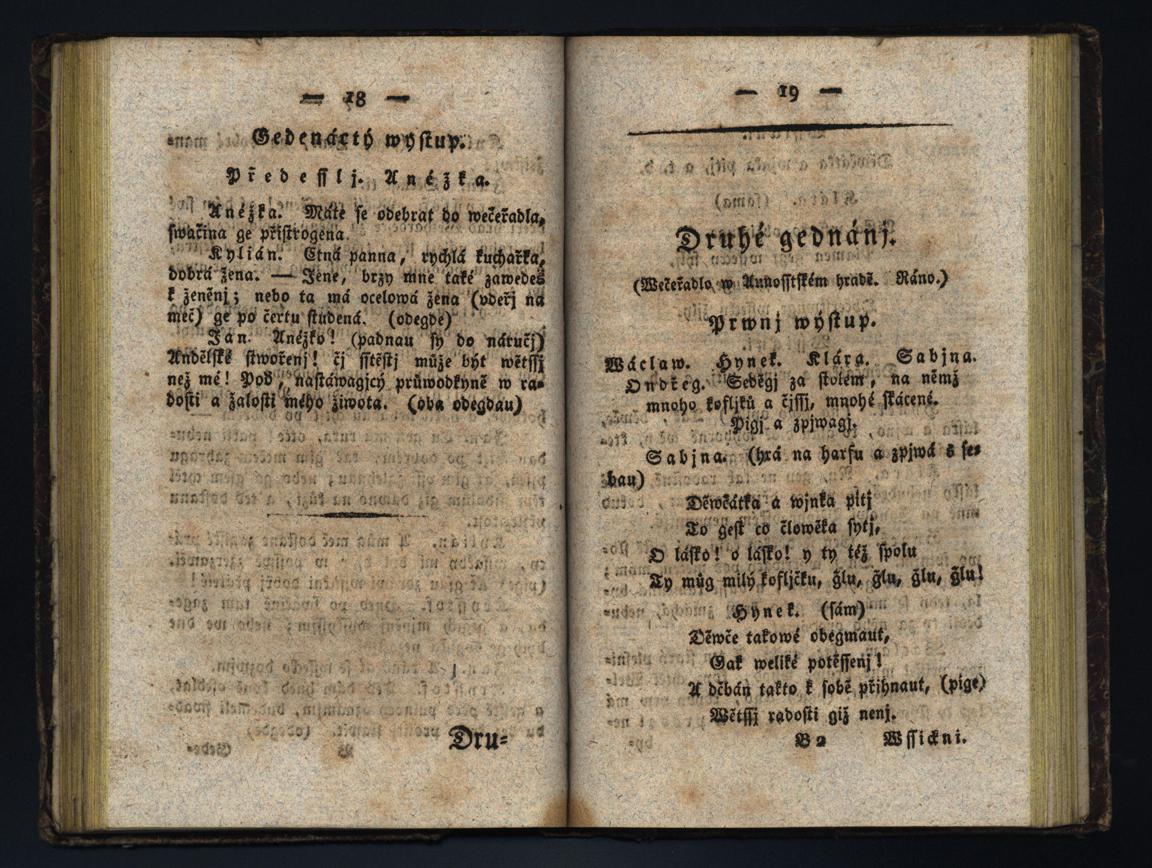 — 18 —
Gedenáctý wýstup.
Předesslj. Anéžka.
Anéžka. Máte se odebrat do wečeřadla,
swačina ge přistrogena.
Kylián. Ctná panna, rychlá kuchařka,
dobrá žena. — Jene, brzy mne také zawedeš
k ženěnj; nebo ta má ocelowá žena (udeřj na
meč) ge po čertu studená. (odegde)
Jan. Anéžko! (padnau sy do nátučj)
Andělské stwořenj! čj sstěstj může být wětssj
než mé! Pod, nastáwagjcý průwodkyně w ra-
dosti a žalosti mého žiwota. (oba odegdau)
Dru-
— 19 —
Druhé gednánj.
(Wečeřadlo w Aunosstském hradě. Ráno.)
Prwnj wýstup.
Wáclaw. Hynek. Klára. Sabjna.
Ondřeg. Seděgj za stolem, na němž
mnoho kofljků a čjssj, mnohé skácené.
Pigj a zpjwagj.
Sabjna. (hrá na harfu a zpjwá s se-
bau)
Děwčátka a wjnka pitj
To gest co člowěka sytj,
O lásko! o lásko! y ty též spolu
Ty můg milý kofljčku, ǧlu, ǧlu, ǧlu, ǧlu!
Hynek. (sám)
Děwče takowé obegmaut,
Gak weliké potěssenj!
A džbán takto k sobě přihnaut, (pige)
Wětssj radosti giž nenj.
B 2 Wssickni.